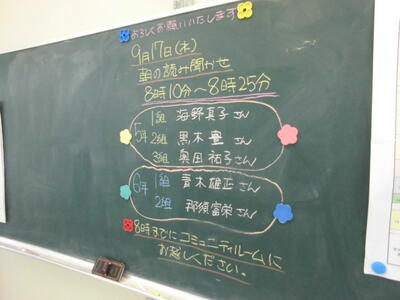 よろしくお願いいたします
9月17日(木)
朝の読み聞かせ
8時10分～8時25分
5年 1組 海野真子さん
2組 黒木 豊さん
3組 奥田祐子さん
6年 1組 青木雄正さん
2組 那須富栄さん
8時までにコミュニティルームに
お越しください。